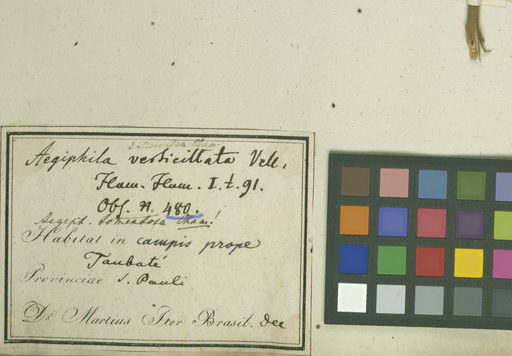 Aegiphila verticillata Vell.
Flam. Flum. I. t. 91.
Obs. N. 480.
Aegiph. tomentosa Cham!
Habitat in campis prope
Taubaté
Provinciae S. Pauli
Dr Martius Iter Brasil. Dec